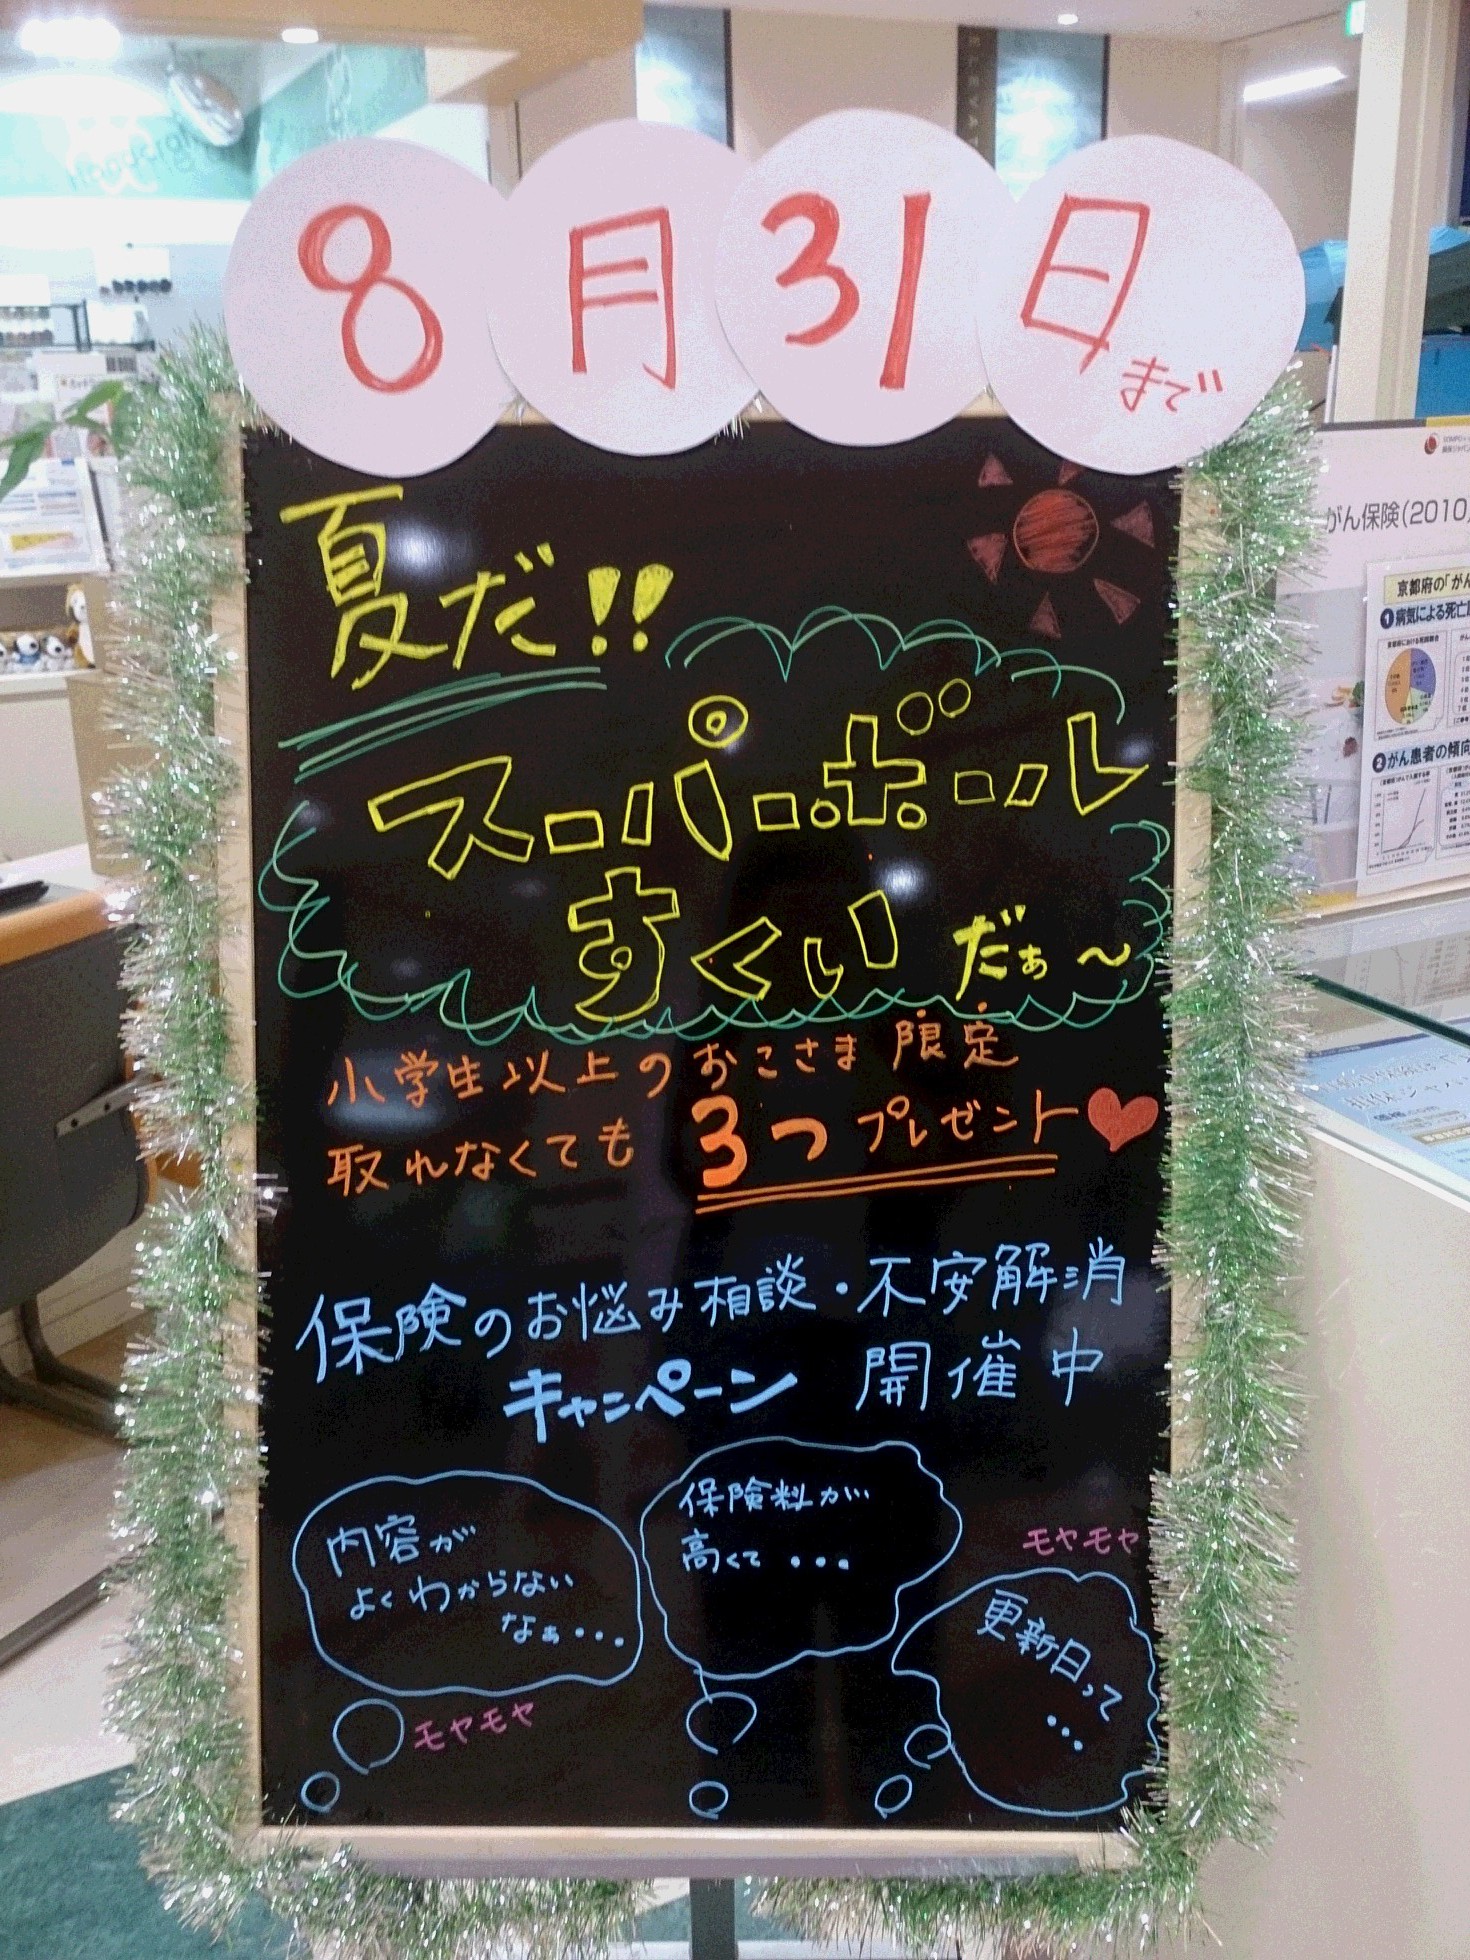 8月31日まで
夏だ!!
スーパーボール
すくいだぁ〜
小学生以上のおこさま限定
取れなくても 3つプレゼント
保険のお悩み相談・不安解消
キャンペーン 開催中
内容が
よくわからない
なぁ・・・
モヤモヤ
保険料が
高くて・・・
モヤモヤ
更新日って
・・・
がん保険(2010
京都府の「がん
❶病気による死亡
❷がん患者の傾向
Handcra